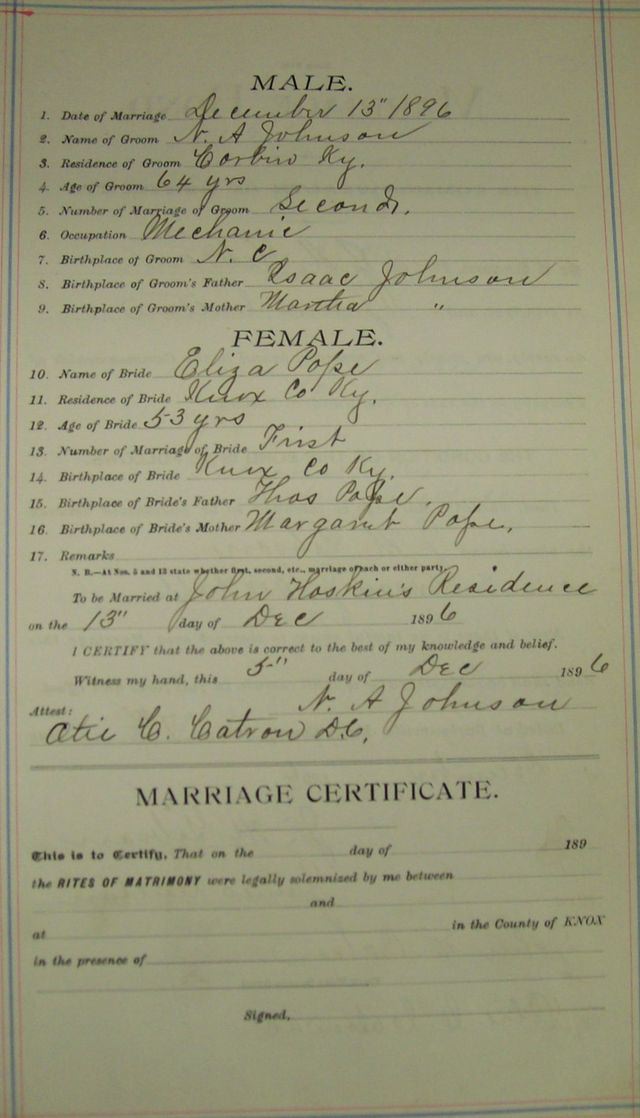 MALE.
1. Date of Marriage December 13" 1896
2. Name of Groom N. A Johnson
3. Residence of Groom Corbin Ky.
4. Age of Groom 64 yrs
5. Number of Marriage of Groom Second.
6. Occupation Mechanic
7. Birthplace of Groom N. C
8. Birthplace of Groom's Father Isaac Johnson
9. Birthplace of Groom's Mother Martha "
FEMALE.
10. Name of Bride Eliza Pope
11. Residence of Bride Knox Co Ky.
12. Age of Bride 53 yrs
13. Number of Marriage of Bride First
14. Birthplace of Bride Knox Co Ky.
15. Birthplace of Bride's Father Thos Pope.
16. Birthplace of Bride's Mother Margaret Pope.
17. Remarks
N. B.—At Nos. 5 and 13 state whether first, second, etc., marriage of each or either party.
To be Married at John Hoskin's Residence
on the 13" day of Dec 1896
I CERTIFY that the above is correct to the best of my knowledge and belief.
Witness my hand, this 5" day of Dec 1896
N. A Johnson
Attest:
C. Catron D.C.
MARRIAGE CERTIFICATE.
This is to Certify, That on the day of 189
the RITES OF MATRIMONY were legally solemnized by me between
and
at in the County of KNOX
in the presence of
Signed,